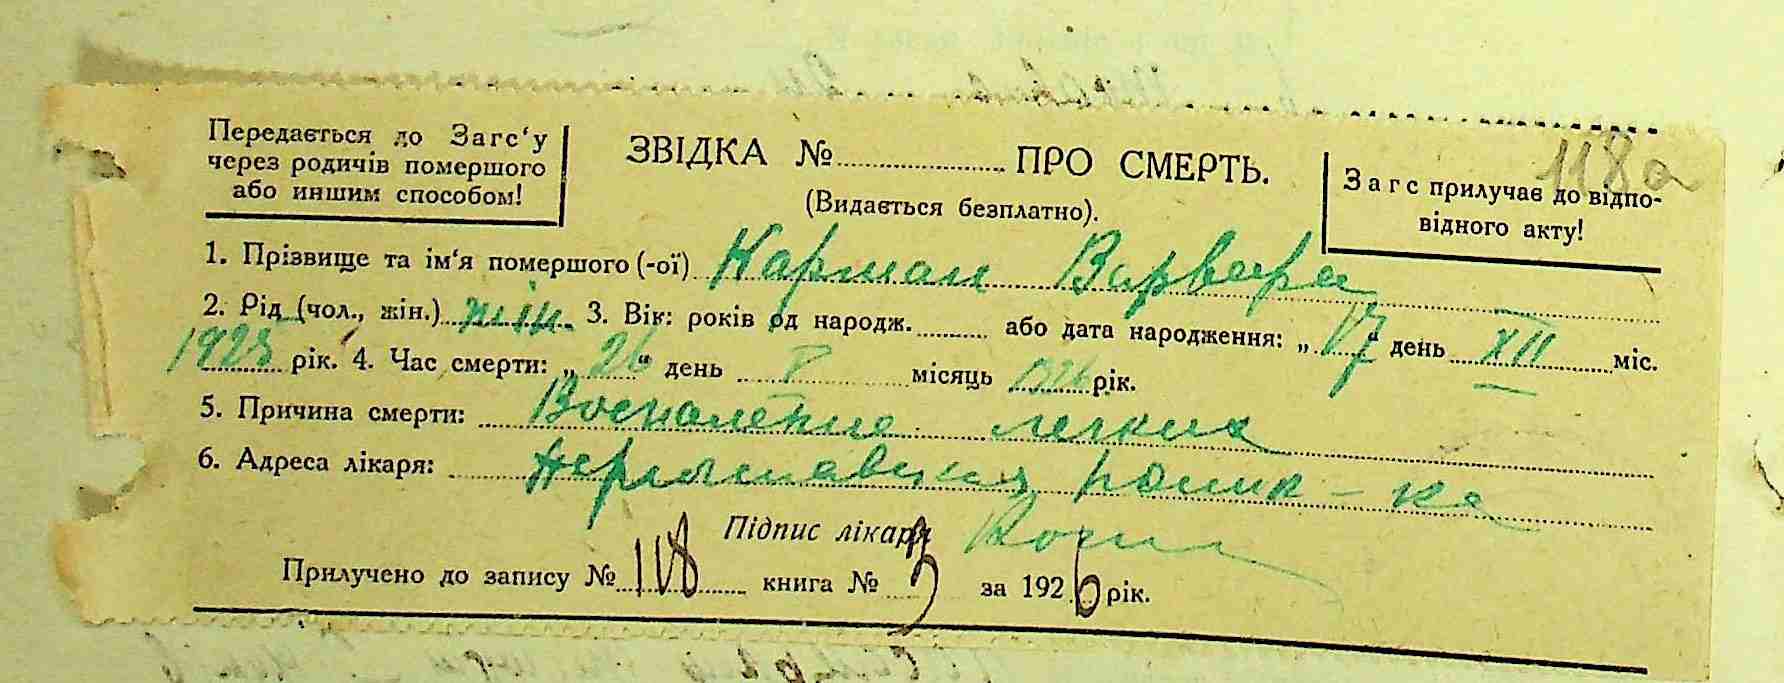 118а
Передається до Загс‘у
через родичів помершого
або иншим способом!
ЗВІДКА № ПРО СМЕРТЬ.
(Видається безплатно).
Загс прилучає до відпо-
відного акту!
1. Прізвище та ім‘я помершого (-ої) Карман Варвара
2. Рід (чол., жін.) жін. 3. Вік: років од народж. або дата народження: „17“ день XII міс.
1925 рік. 4. Час смерти: „26“ день V місяць 1926 рік.
5. Причина смерти: Воспаление легких
6. Адреса лікаря:
Підпис лікаря
Прилучено до запису № 118 книга № 3 за 1926 рік.